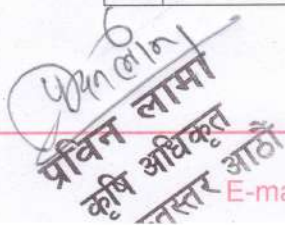 प्रविन लामा
कृषि अधिकृत
स्तर आठौं
E-ma